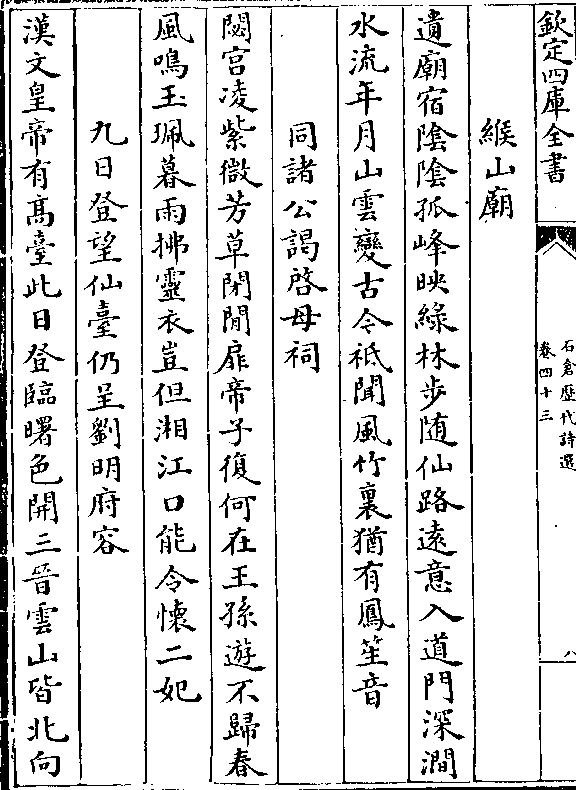 欽定四庫全書
石倉歷代詩選
卷四十三
八
緱山廟
遺廟宿陰陰孤峰映緑林步随仙路遠意入道門深澗
水流年月山雲變古今祗聞風竹裏猶有鳳笙音
同諸公謁啓母祠
閟宫凌紫微芳草閉閒扉帝子復何在王孫遊不歸春
風鳴玉珮暮雨拂靈衣豈但湘江口能令懷二妃
九日登望仙臺仍呈劉明府容
漢文皇帝有髙臺此日登臨曙色開三晉雲山皆北向